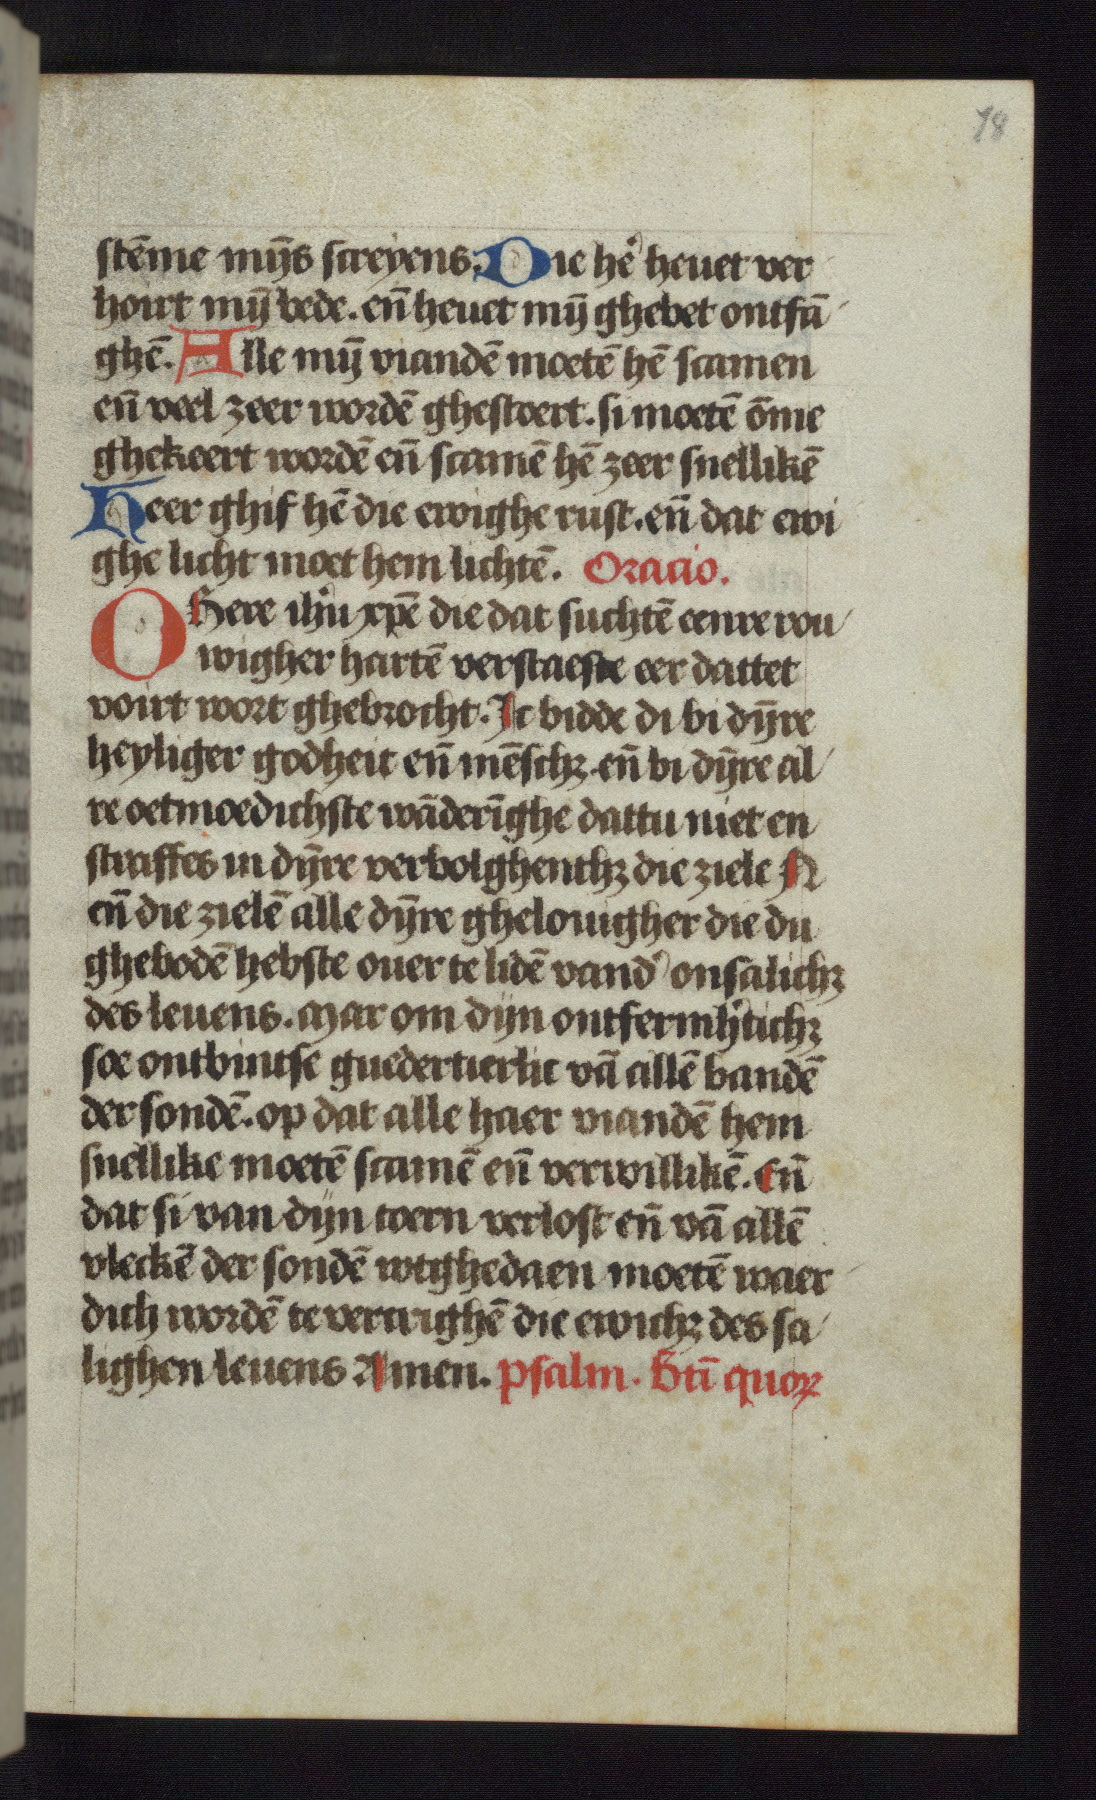 18
stēme mijs screyens. Die hē heuet ver
hoirt mij bede. eñ heuet mij ghebet ontfā
ghē. Alle mij viandē moetē hē scamen
eñ veel zeer wordē ghestoert. si moetē ōme
ghekeert wordē eñ scamē hē zeer snellikē
Heer ghif hē die ewighe rust. eñ dat ewi
ghe licht moet hem lichtē. Oracio.
O Here ihu xpē die dat suchtē eenre rou
wigher hartē verstaeste eer dattet
voirt wort ghebrocht. Ic bidde di bi dijre
heyliger godheit eñ mēschꝫ. eñ bi dijre al
re oetmoedichste wāderīghe dattu niet en
straffes in dijre verbolghenthꝫ die ziele N
eñ die zielē alle dijre ghelouigher die du
ghebodē hebste ouer te lidē vand onsalichꝫ
des leuens. Mar om dijn ontfermhticꝫ
soe ontbintse guedertierlic vā allē bandē
der sondē. op dat alle haer viandē hem
snellike moetē scamē eñ verwillikē. Eñ
dat si van dijn toern verlost eñ vā allē
vleckē der sondē wtghedaen moetē waer
dich wordē te vercrighē die ewichꝫ des sa
lighen leuens Amen. psalm. Bti quoꝝ